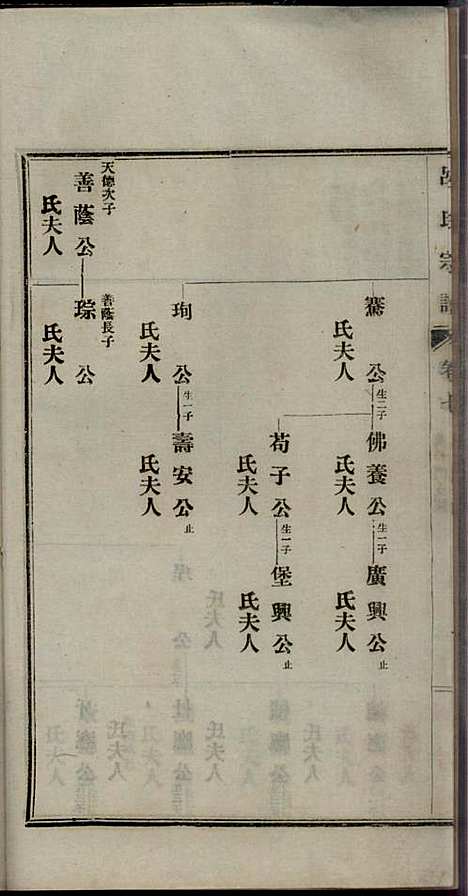 呂氏宗譜
卷七
騫公 生二子
氏夫人
佛養公 生一子
氏夫人
廣興公 止
氏夫人
荀子公 生一子
氏夫人
堡興公 止
氏夫人
珣公 生一子
氏夫人
壽安公 止
氏夫人
天德次子
善蔭公
氏夫人
善蔭長子
琮公
氏夫人